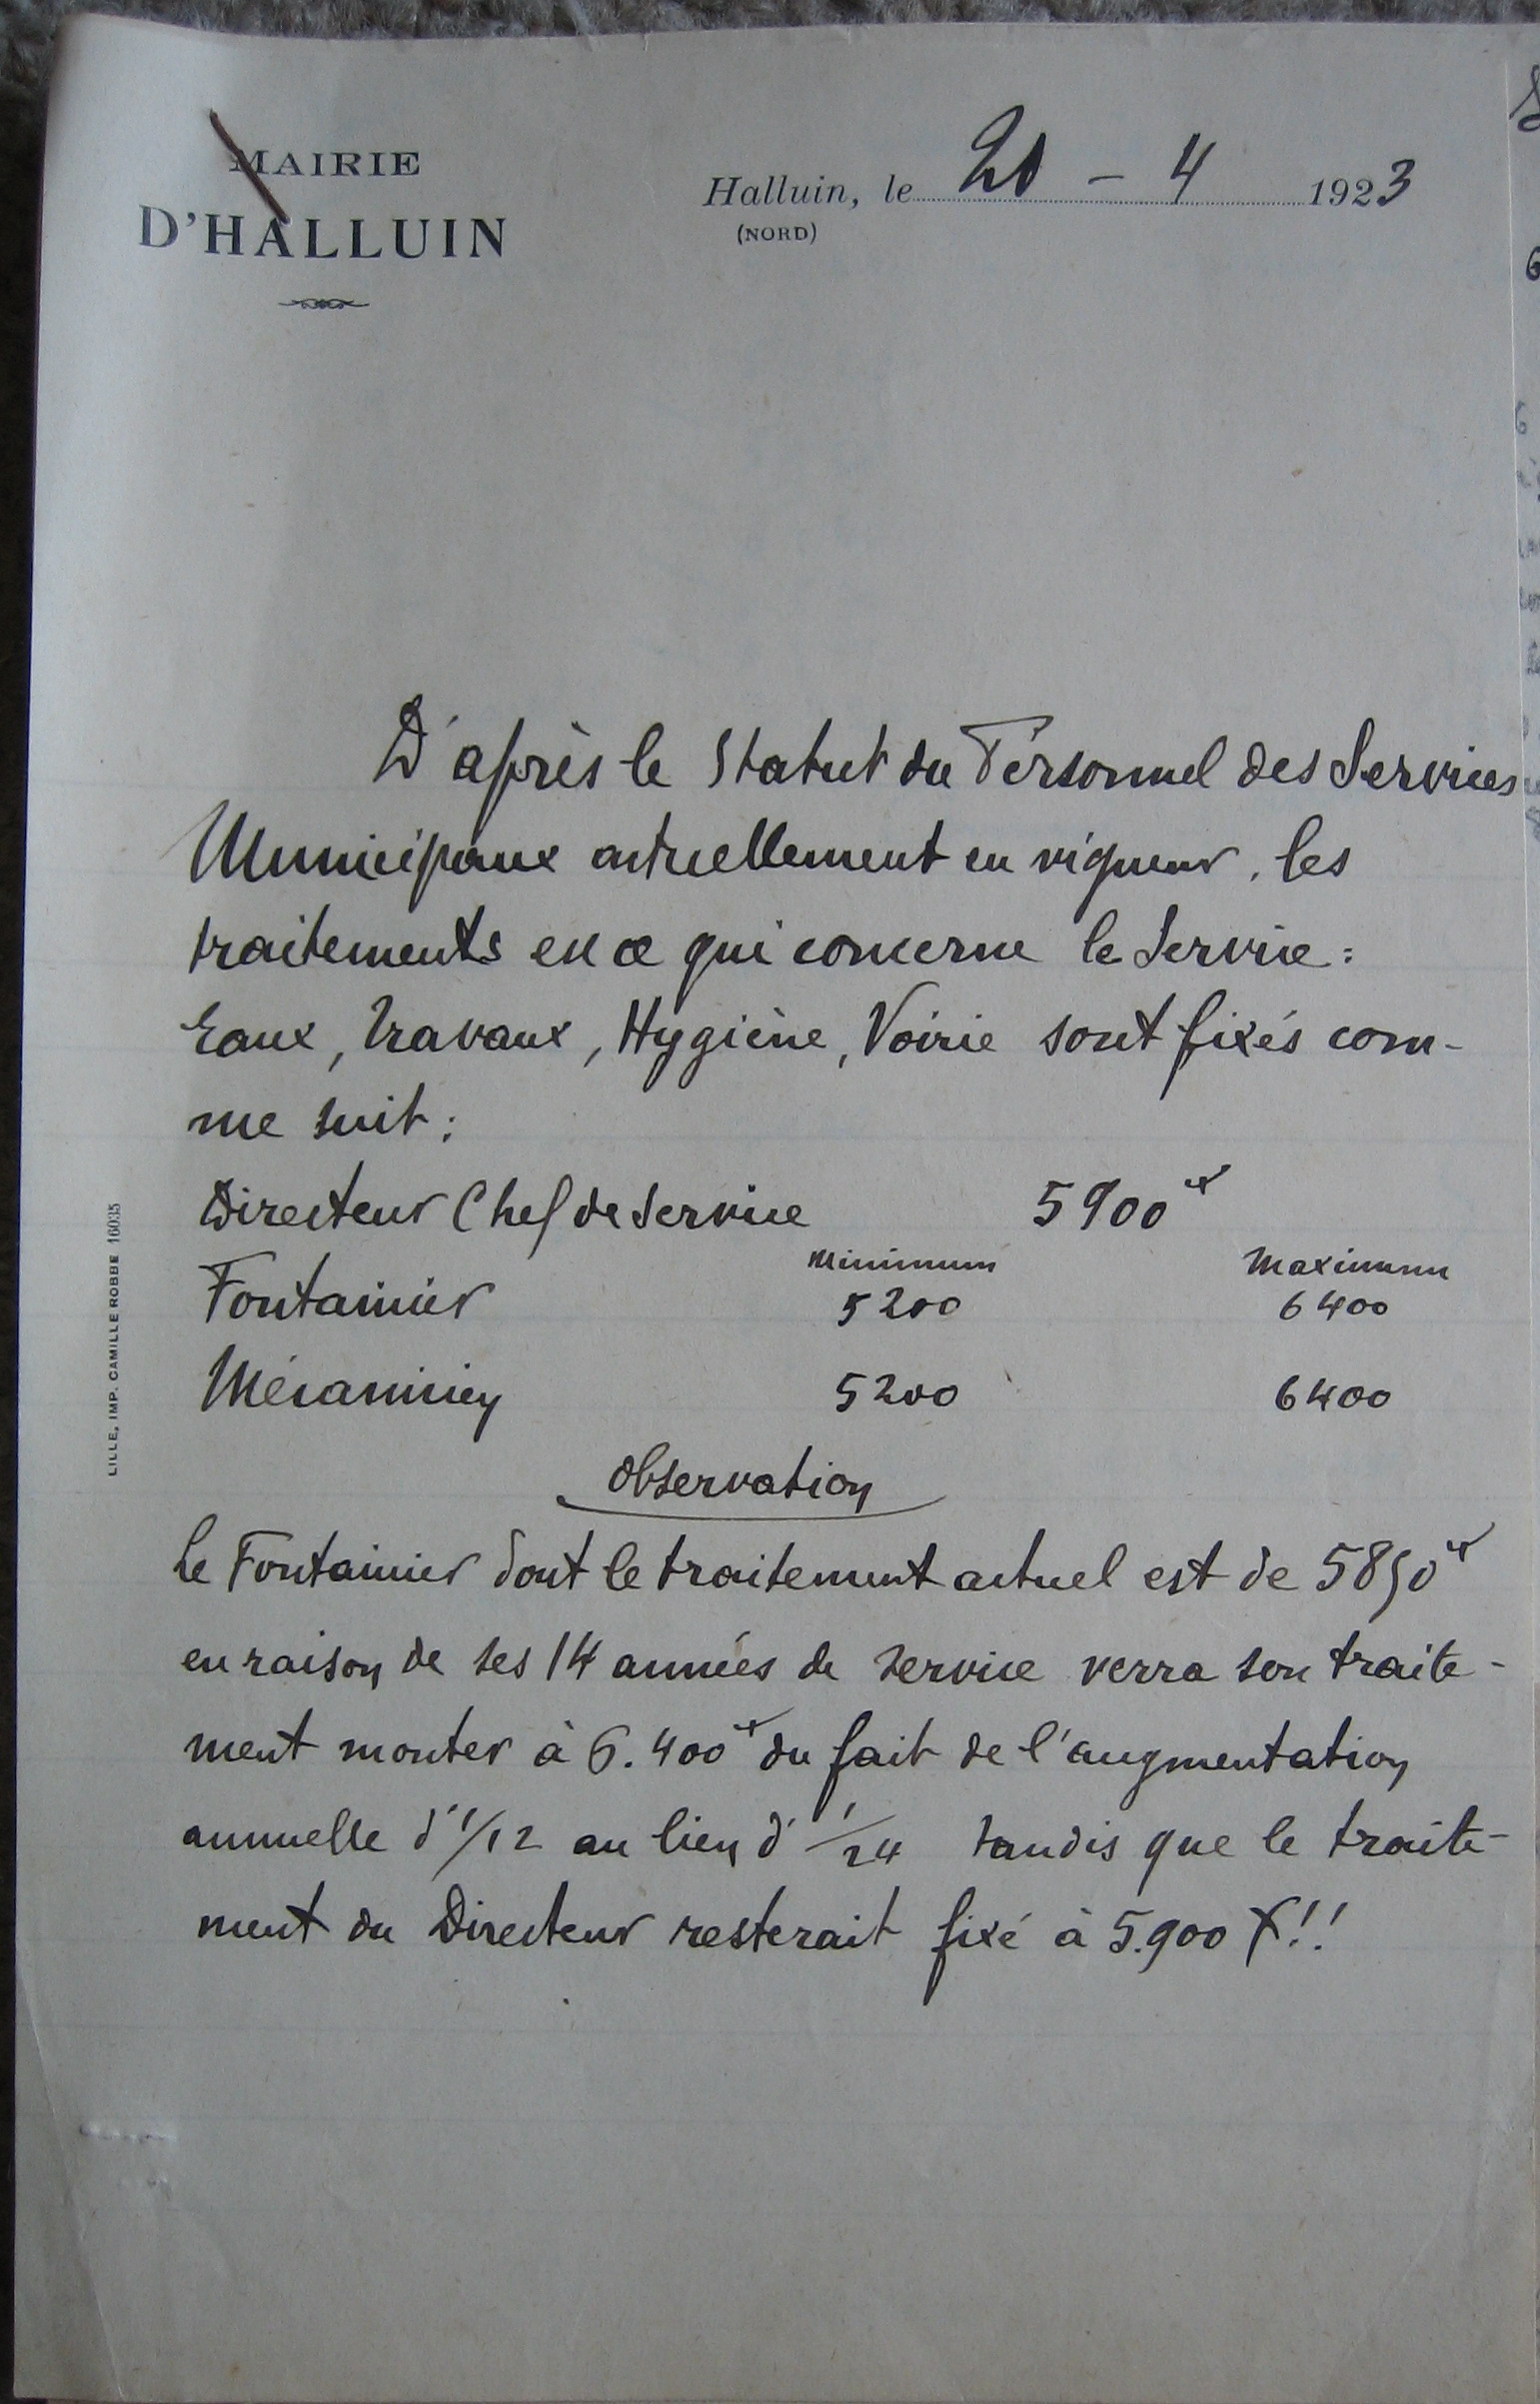 MAIRIE
D'HALLUIN
Halluin, le 20 - 4 1923
(NORD)
D'après le Statut du Personnel des Services
Municipaux actuellement en vigueur, les
traitements en ce qui concerne le Service :
Eaux, Travaux, Hygiène, Voirie sont fixés com-
me suit :
Directeur Chef de Service 5900
Minimum Maximum
Fontainier 5200 6400
Mécanicien 5200 6400
Observation
Le Fontainier dont le traitement actuel est de 5850
en raison de ses 14 années de service verra son traite-
ment monter à 6.400 du fait de l'augmentation
annuelle d'1/12 au lieu d'1/24 tandis que le traite-
ment du Directeur resterait fixé à 5.900 !!
LILLE, IMP. CAMILLE ROBBE 16035